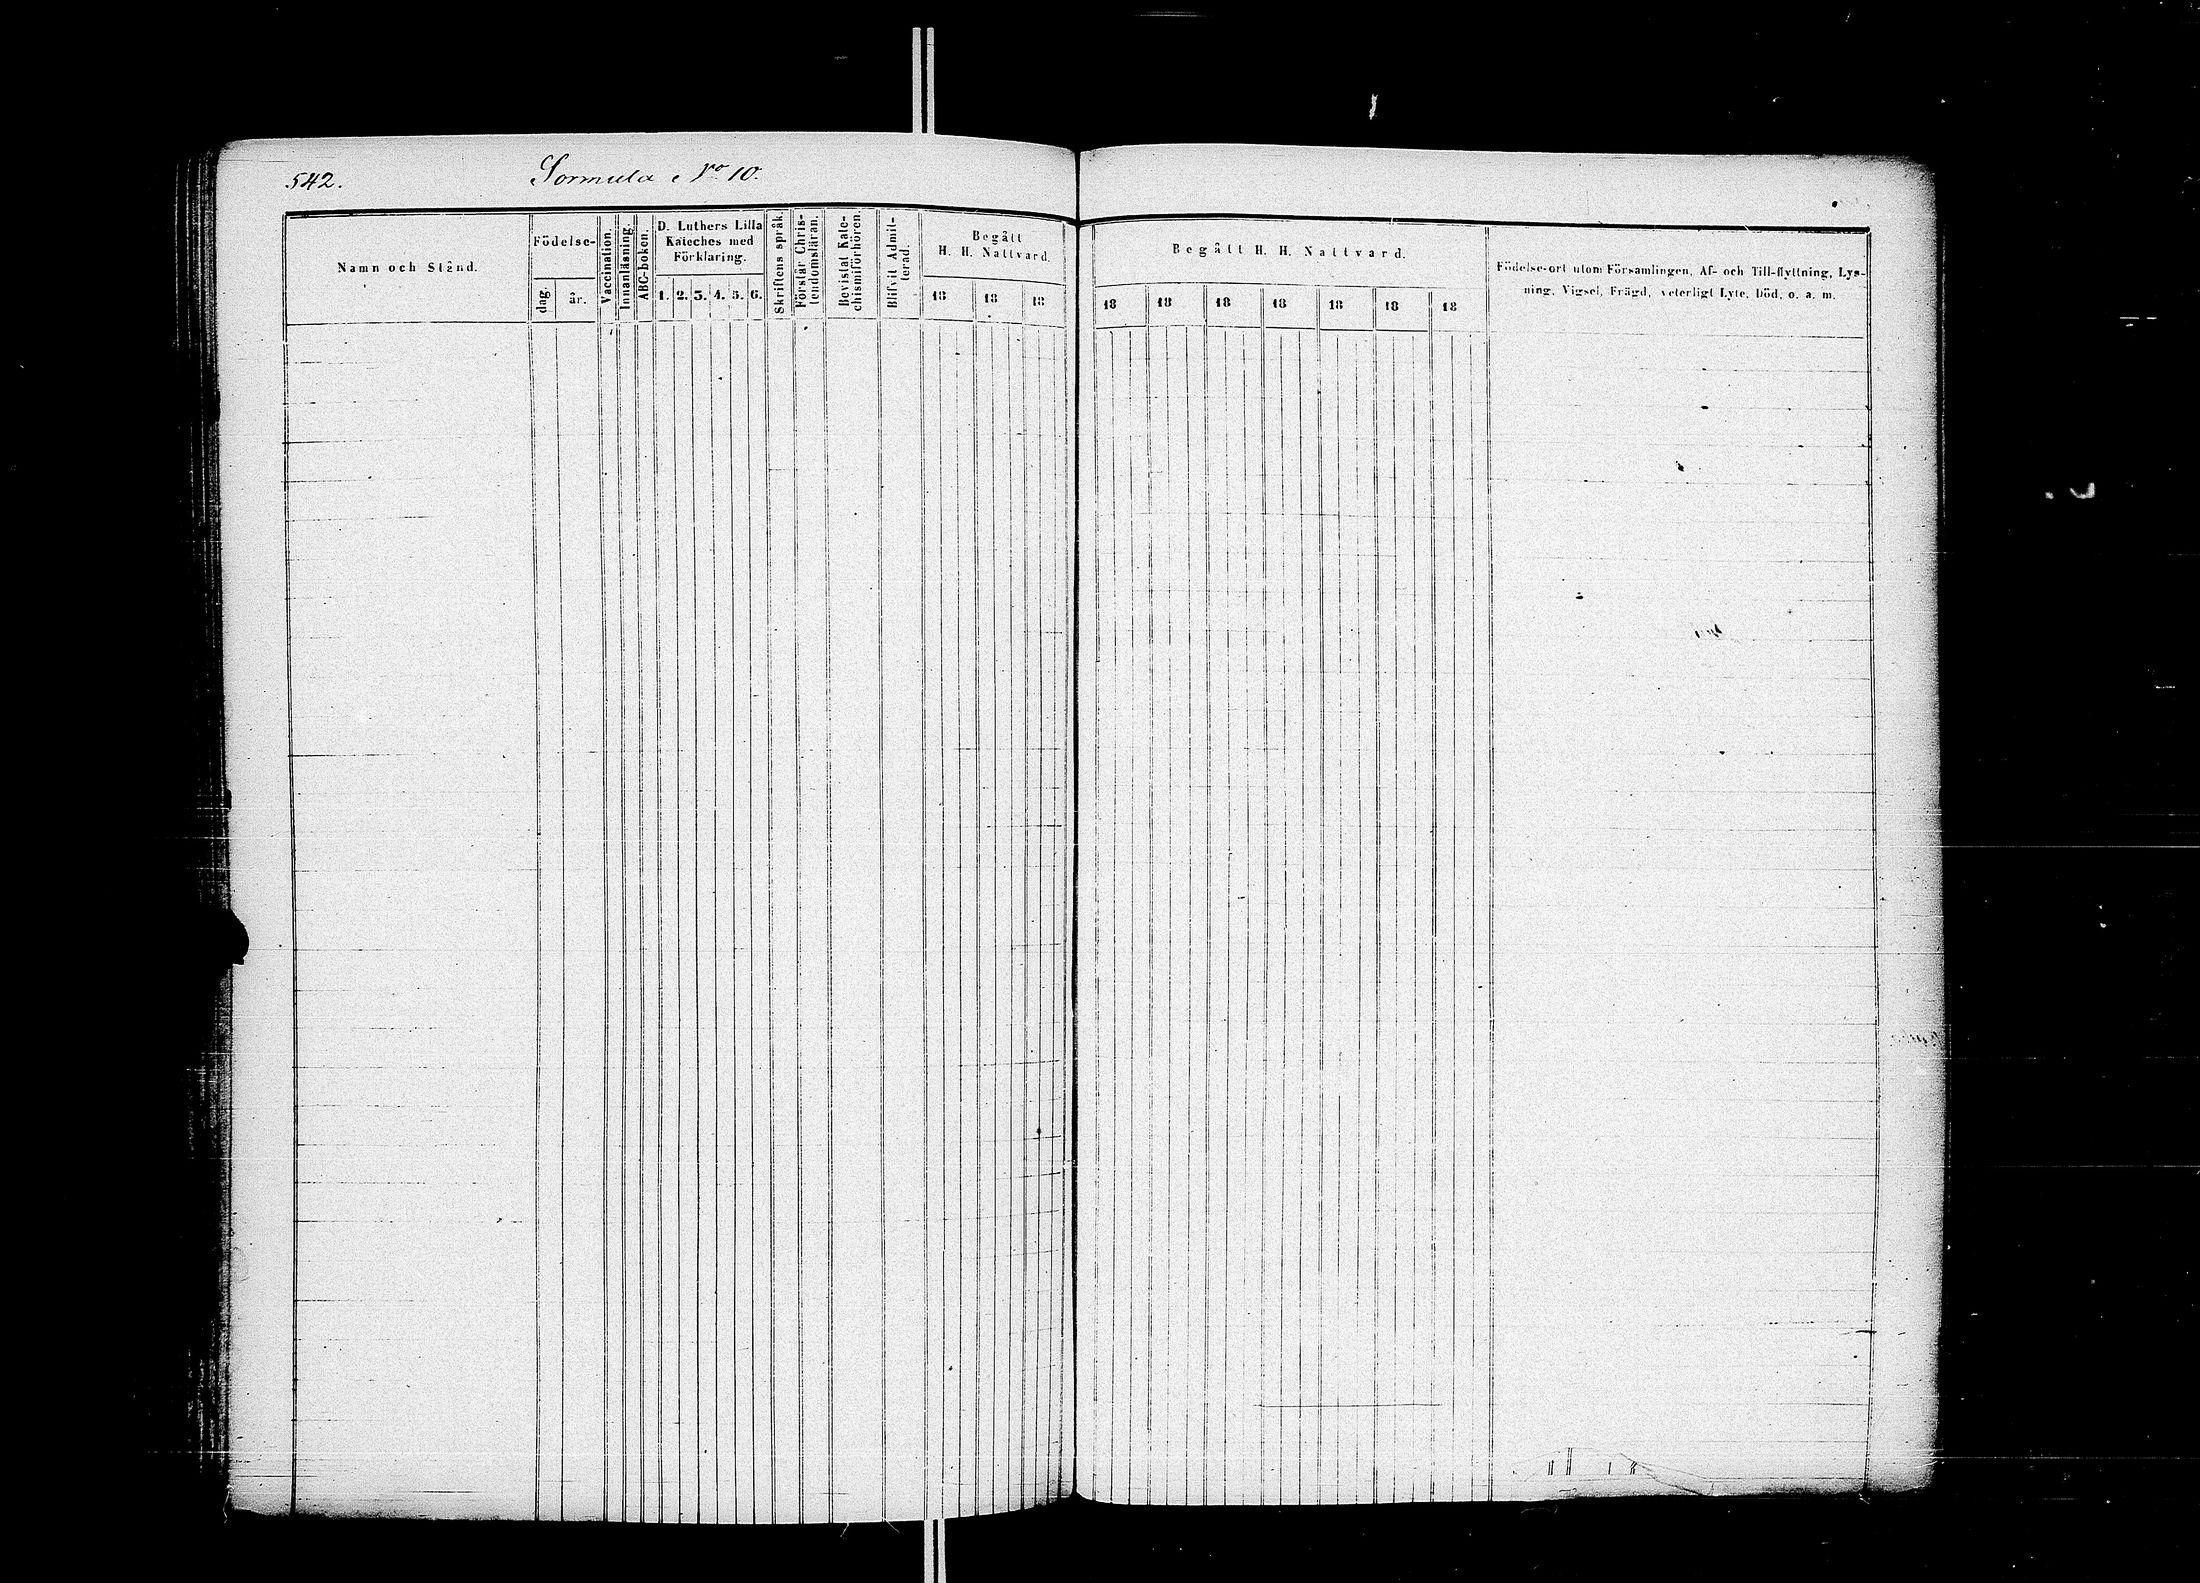 542. Sormula No 10.
Namn och Stånd.
Födelse-
dag.
år.
Vaccination.
Innanläsning.
ABC-boken.
D. Luthers Lilla
Kateches med
Förklaring.
1. 2. 3. 4. 5. 6.
Skriftens språk.
Förstår Chris-
tendomsläran.
Bevistat Kate-
chismiförhören.
Blifvit Admit-
terad.
Begått
H. H. Nattvard.
18 18 18
Begått H. H. Nattvard.
18 18 18 18 18 18 18
Födelse-ort utom Församlingen, Af- och Till-flyttning, Lys-
ning, Vigsel, Frägd, veterligt Lyte, Död, o. a. m.